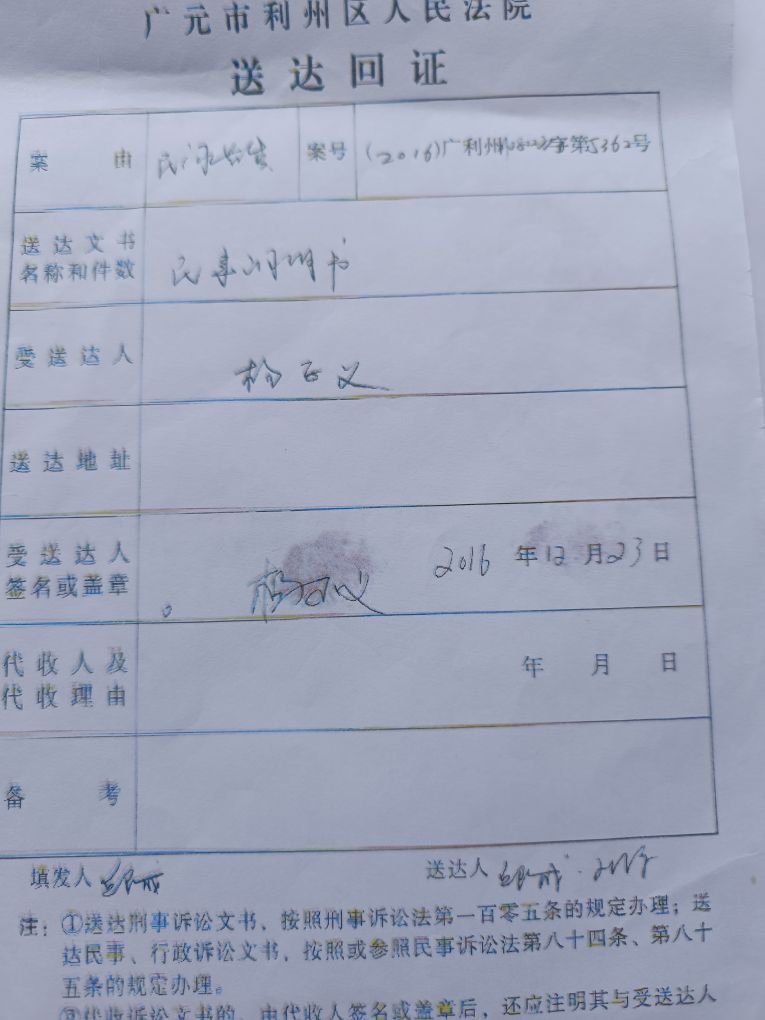 广元市利州区人民法院
送达回证
案由 案号 (2016)广利州 字第5362号
送达文书
名称和件数 民事 书
受送达人 杨正义
送达地址
受送达人
签名或盖章 杨正义 2016年12月23日
代收人及
代收理由 年 月 日
备考
填发人 送达人
注：①送达刑事诉讼文书，按照刑事诉讼法第一百零五条的规定办理；送
达民事、行政诉讼文书，按照或参照民事诉讼法第八十四条、第八十
五条的规定办理。
②代收诉讼文书的，由代收人签名或盖章后，还应注明其与受送达人